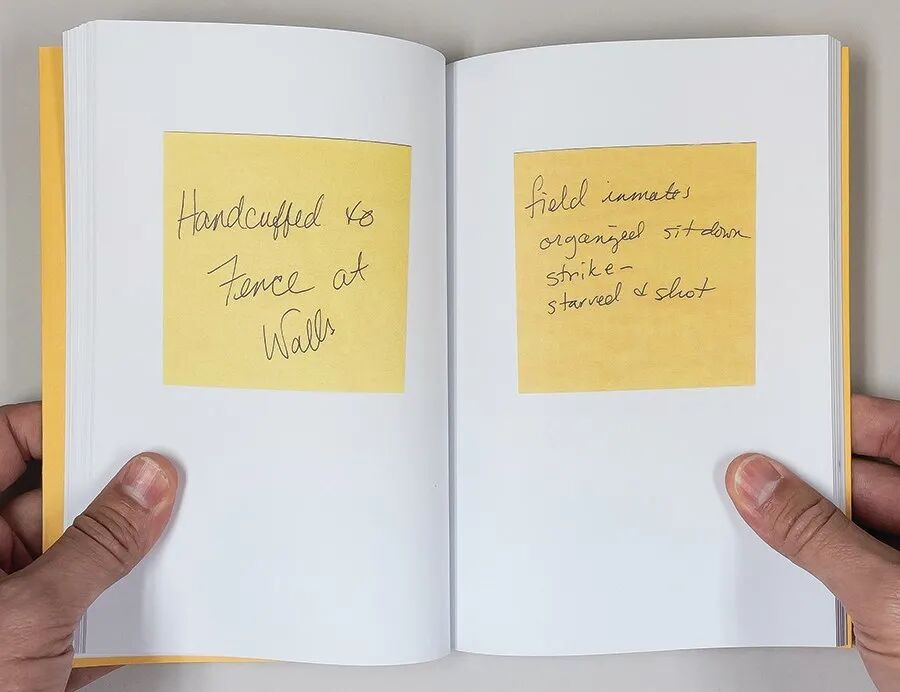 Handcuffed to
Fence at
Walls
field inmates
organized sit down
strike-
starved & shot